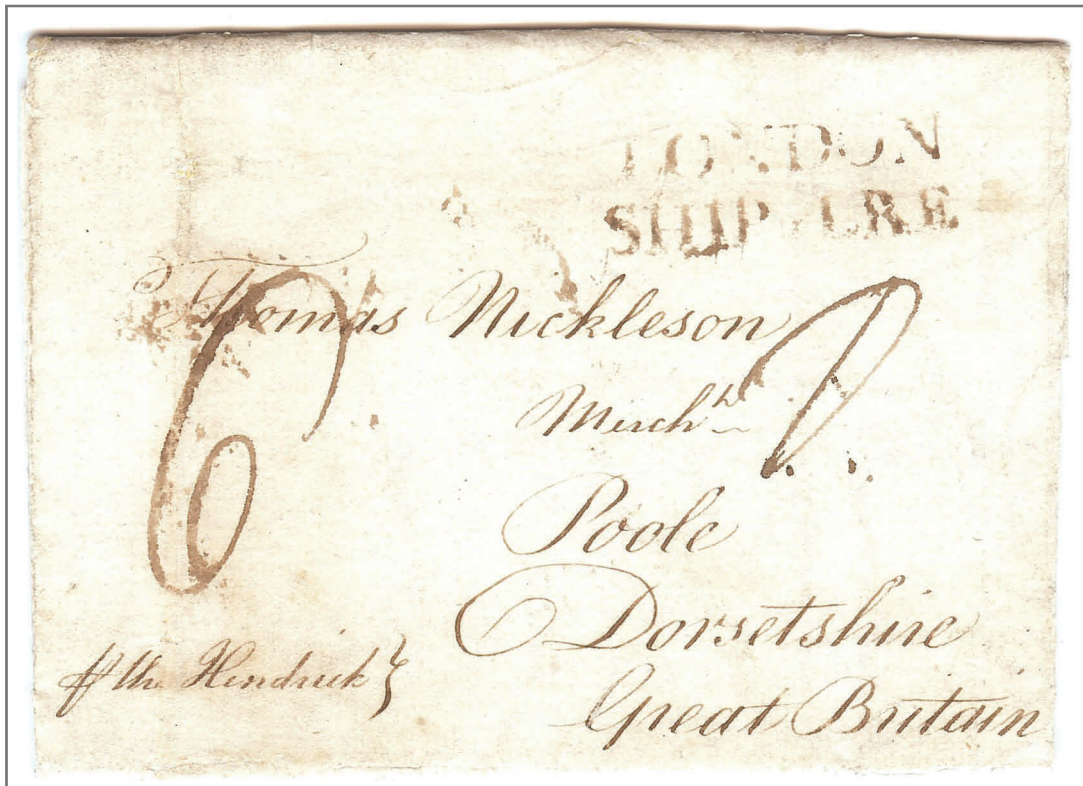 LONDON
SHIP LRE
Thomas Nickleson
Merch<sup>t</sup>
Poole
Dorsetshire
Great Britain
6
⅌ the Hendrick